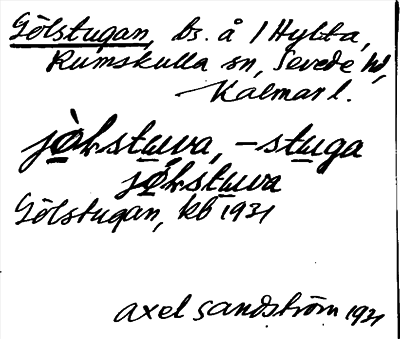 Gölstugan, bs. å 1 Hylta,
Rumskulla sn, Sevede hd,
Kalmar l.
jòlstuva, -stuga
jölstuva
Gölstugan, kb 1931
Axel Sandström 1931